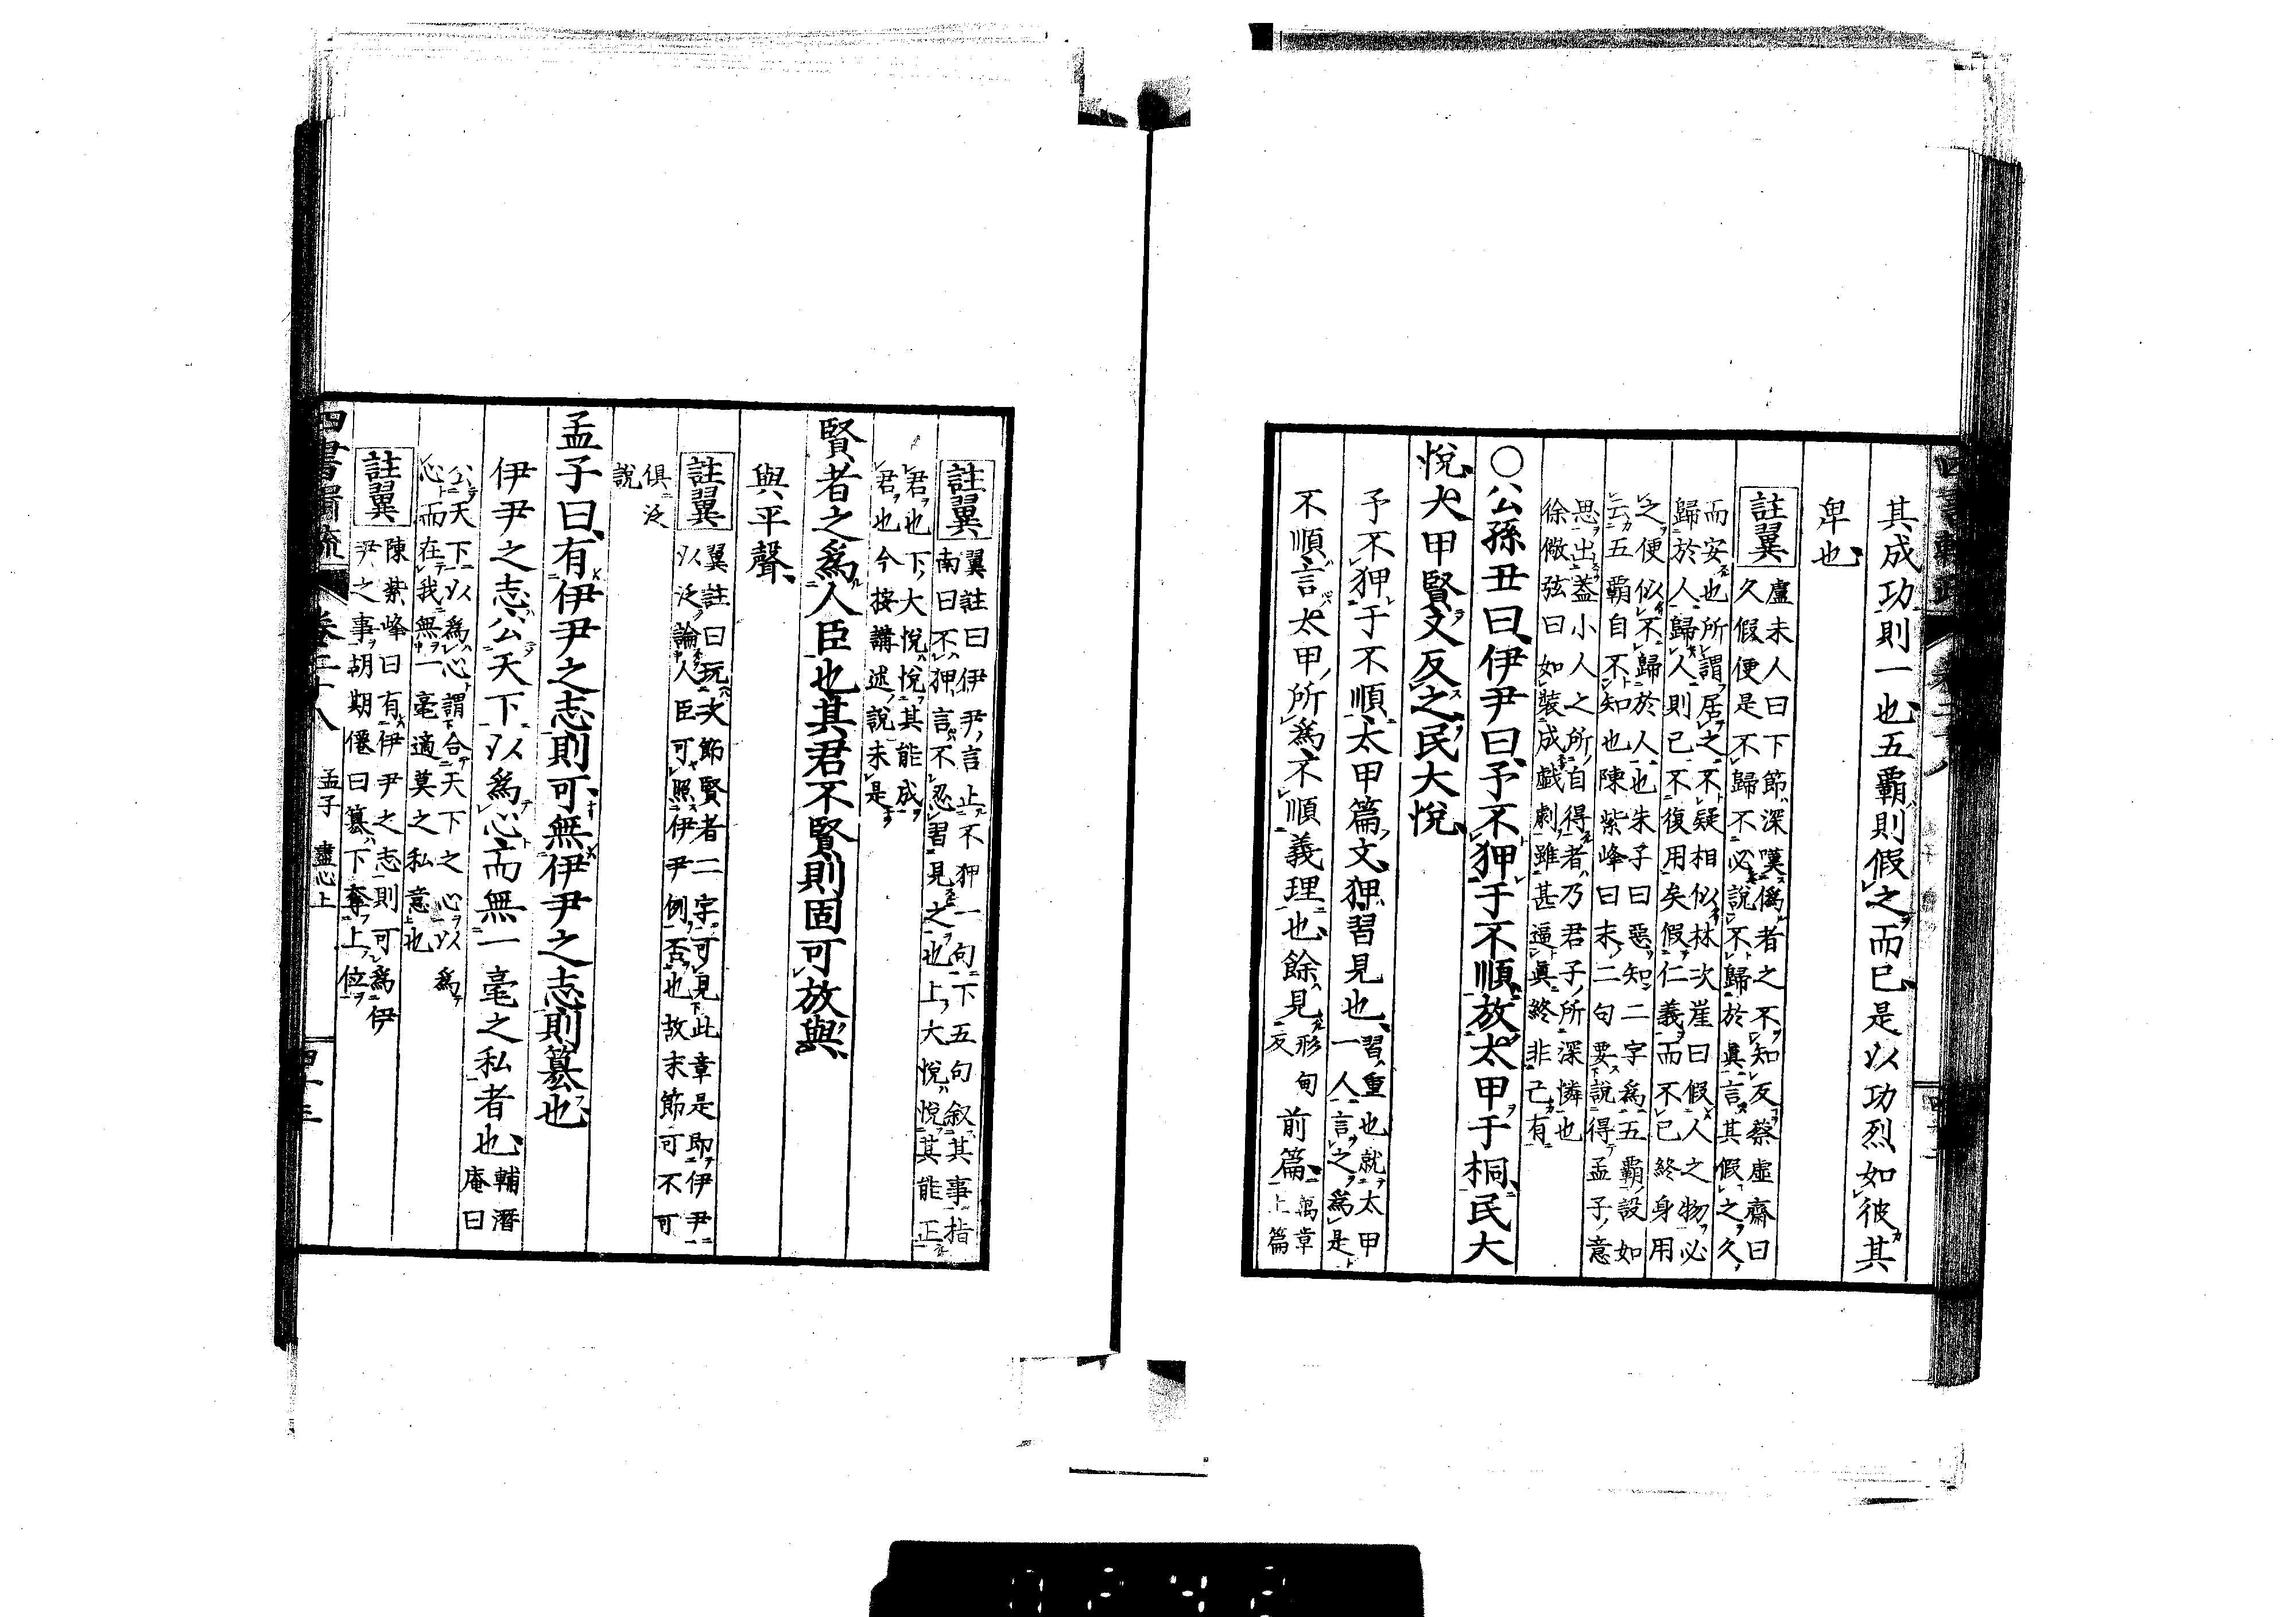 其成功則一也五霸則假之而已是以功烈如彼其
卑也
註翼
盧未人曰下節深嘆僞者之不知反蔡虛齋曰
久假便是不歸不必說不歸於眞言其假之久
而安也所謂居之不疑相似林次崖曰假人之物必
歸於人歸人則已不復用矣假仁義而不已終身用
之便似不歸於人也朱子曰惡知二字爲五霸設如
云五霸自不知也陳紫峰曰末二句要說得孟子意
思出蓋小人之所自得者乃君子所深憐也
徐儆弦曰如裝成戲劇雖甚逼眞終非己有
○公孫丑曰伊尹曰予不狎于不順放太甲于桐民大
悅太甲賢又反之民大悅
予不狎于不順太甲篇文狎習見也
習重也就太甲
一人言之爲是
不順言太甲所爲不順義理也餘見
形甸
反
前篇
萬章
上篇
註翼
翼註曰伊尹言止不狎一句下五句叙其事指
南曰不狎言不忍習見之也上大悅悅其能正
君也下大悅悅其能成
君也今按講述說未是
賢者之爲人臣也其君不賢則固可放與
與平聲
註翼
翼註曰玩次節賢者二字可見此章是即伊尹
以泛論人臣可照伊尹例否也故末節可不可
俱泛
說
孟子曰有伊尹之志則可無伊尹之志則簒也
伊尹之志公天下以爲心而無一毫之私者也
輔潛
庵曰
公天下以爲心謂合天下之心以爲
心而在我無一毫適莫之私意也
註翼
陳紫峰曰有伊尹之志則可爲伊
尹之事胡期僊曰簒下奪上位
四書
卷二十八
孟子 盡心上
四十三